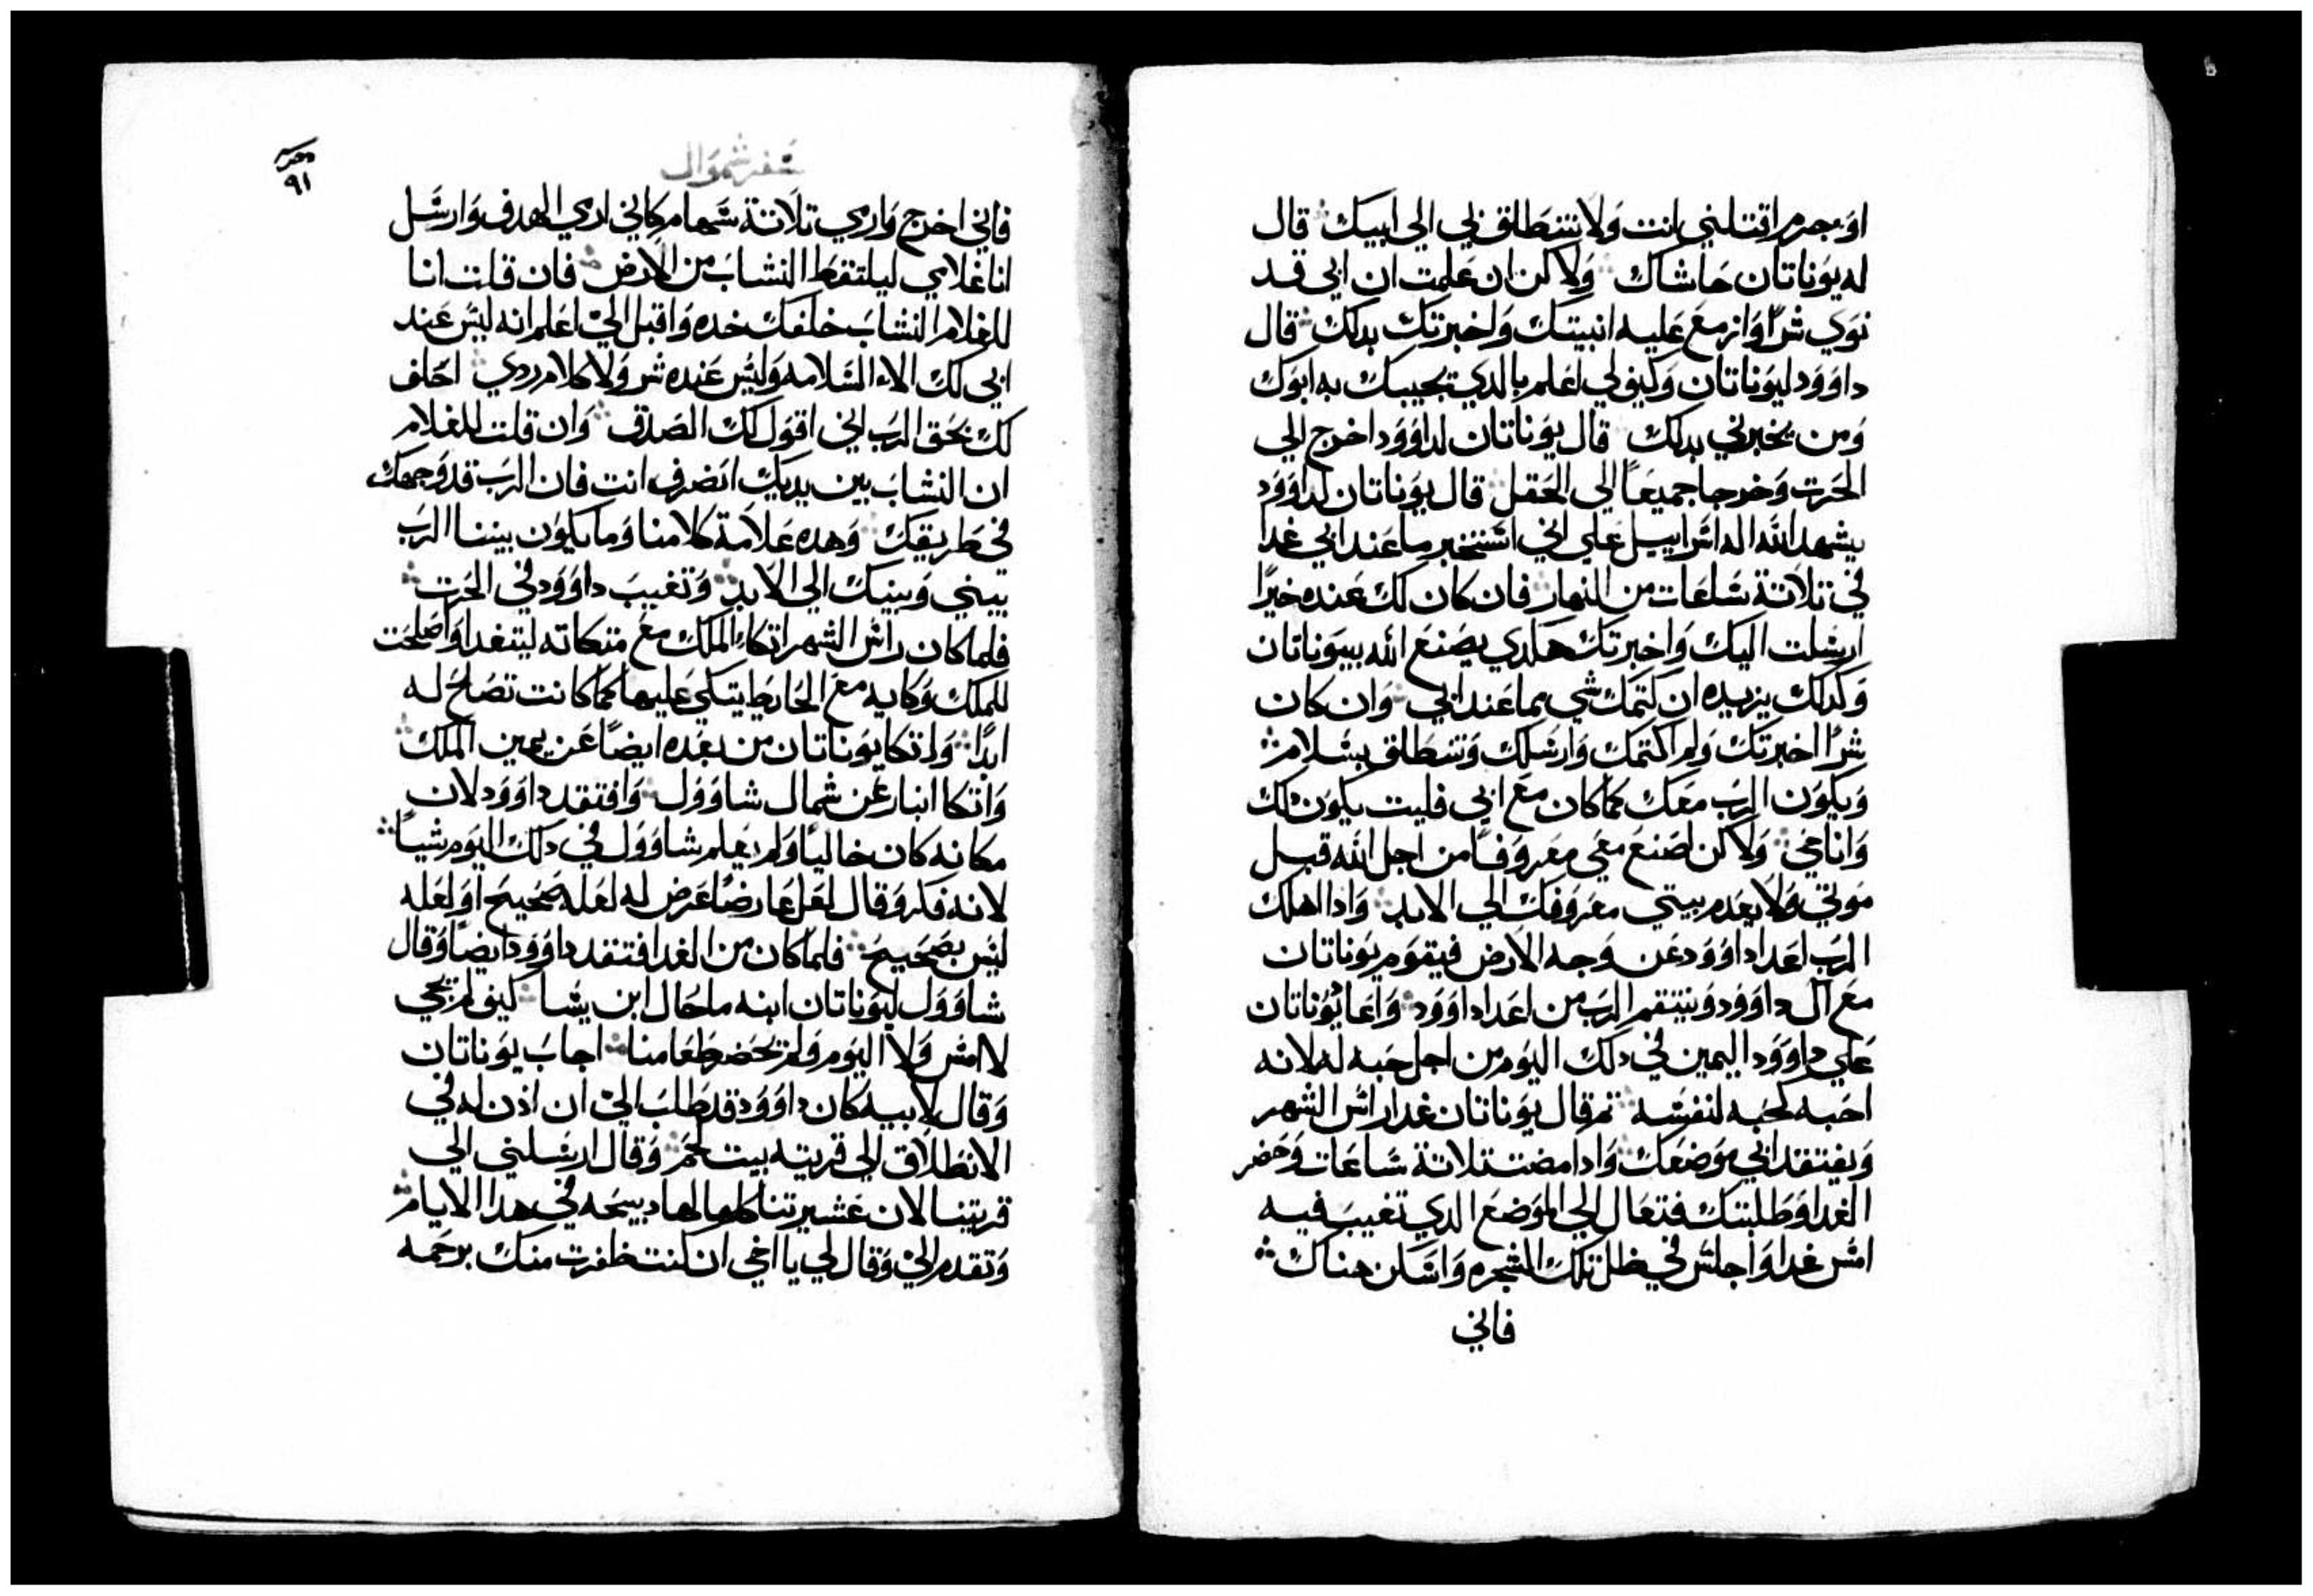 او جرم اقتلني انت ولا تنطلق بي الي ابيك قال
له يوناتان حاشاك ولاكن ان علمت ان ابي قد
نوي شرًا وازمع عليه انبيتك واخبرتك بدلك قال
داوود ليوناتان وكيف لي اعلم بالدي يجيبك به ابوك
ومن يخبرني بدلك قال يوناتان لداوود اخرج الي
الحرت وخرجا جميعًا الي الحقل قال يوناتان لداوود
يشهد الله اله اسراييل علي اني استخبر ما عند ابي غدا
في تلاتة ساعات من النهار فان كان لك عنده خيرًا
ارسلت اليك واخبرتك هكدي يصنع الله بيوناتان
وكدلك يزيده ان كتمك شي مما عند ابي وان كان
شرًا اخبرتك ولم اكتمك وارسلك وتنطلق بسلام
ويكون الرب معك كما كان مع ابي فليت يكون دلك
وانا حي ولاكن اصنع معي معروفًا من اجل الله قبل
موتي ولا يعدم بيتي معروفك الي الابد وادا اهلك
الرب اعدا داوود عن وجه الارض فيقوم يوناتان
مع ال داوود وينتقم الرب من اعدا داوود واعا يوناتان
علي داوود اليمين في دلك اليوم من اجل حبه له لانه
احبه كحبه لنفسه تم قال يوناتان غدا راس الشهر
ويفتقد ابي موضعك وادا مضت تلاتة ساعات وحضر
الغدا وطلبتك فتعال الي الموضع الدي تغيب فيه
امس غدا واجلس في ظل تلك الشجره واسكن هناك
فاني
سفر شموال
٩١
فاني اخرج واري تلاتة سهام كاني اري الهدف وارسل
انا غلامي ليلتقط النشاب من الارض فان قلت انا
للغلام النشاب خلفك خده واقبل الي اعلم انه ليس عند
ابي لك الا السلامه وليس عنده شر ولا كلام ردي احلف
لك بحق الرب اني اقول لك الصدق وان قلت للغلام
ان النشاب بين يديك انصرف انت فان الرب قد وجهك
في طريقك وهده علامة كلامنا وما يكون بيننا الرب
بيني وبينك الي الابد وتغيب داوود في الحرت
فلما كان راس الشهر اتكاء الملك مع متكاته ليتغدا واصلحت
للملك وكايه مع الحايط يتكي عليها كما كانت تصلح له
ابدًا واتكا يوناتان من بعده ايضًا عن يمين الملك
واتكا ابنار عن شمال شاوول وافتقد داوود لان
مكانه كان خاليًا ولم يعلم شاوول في دلك اليوم شيًا
لانه فكر وقال لعل عارضًا عرض له لعله صحيح او لعله
ليس بصحيح فلما كان من الغد افتقد داوود ايضًا وقال
شاوول ليوناتان ابنه ما حال ابن يسا كيف لم يجي
لا امس ولا اليوم ولم يحضر طعامنا اجاب يوناتان
وقال لابيه كان داوود قد طلب الي ان ادن له في
الانطلاق الي قريته بيت لحم وقال ارسلني الي
قريتنا لان عشيرتنا كلها لها دبيحه في هدا الايام
وتقدم الي وقال لي يا اخي ان كنت ظفرت منك برحمه